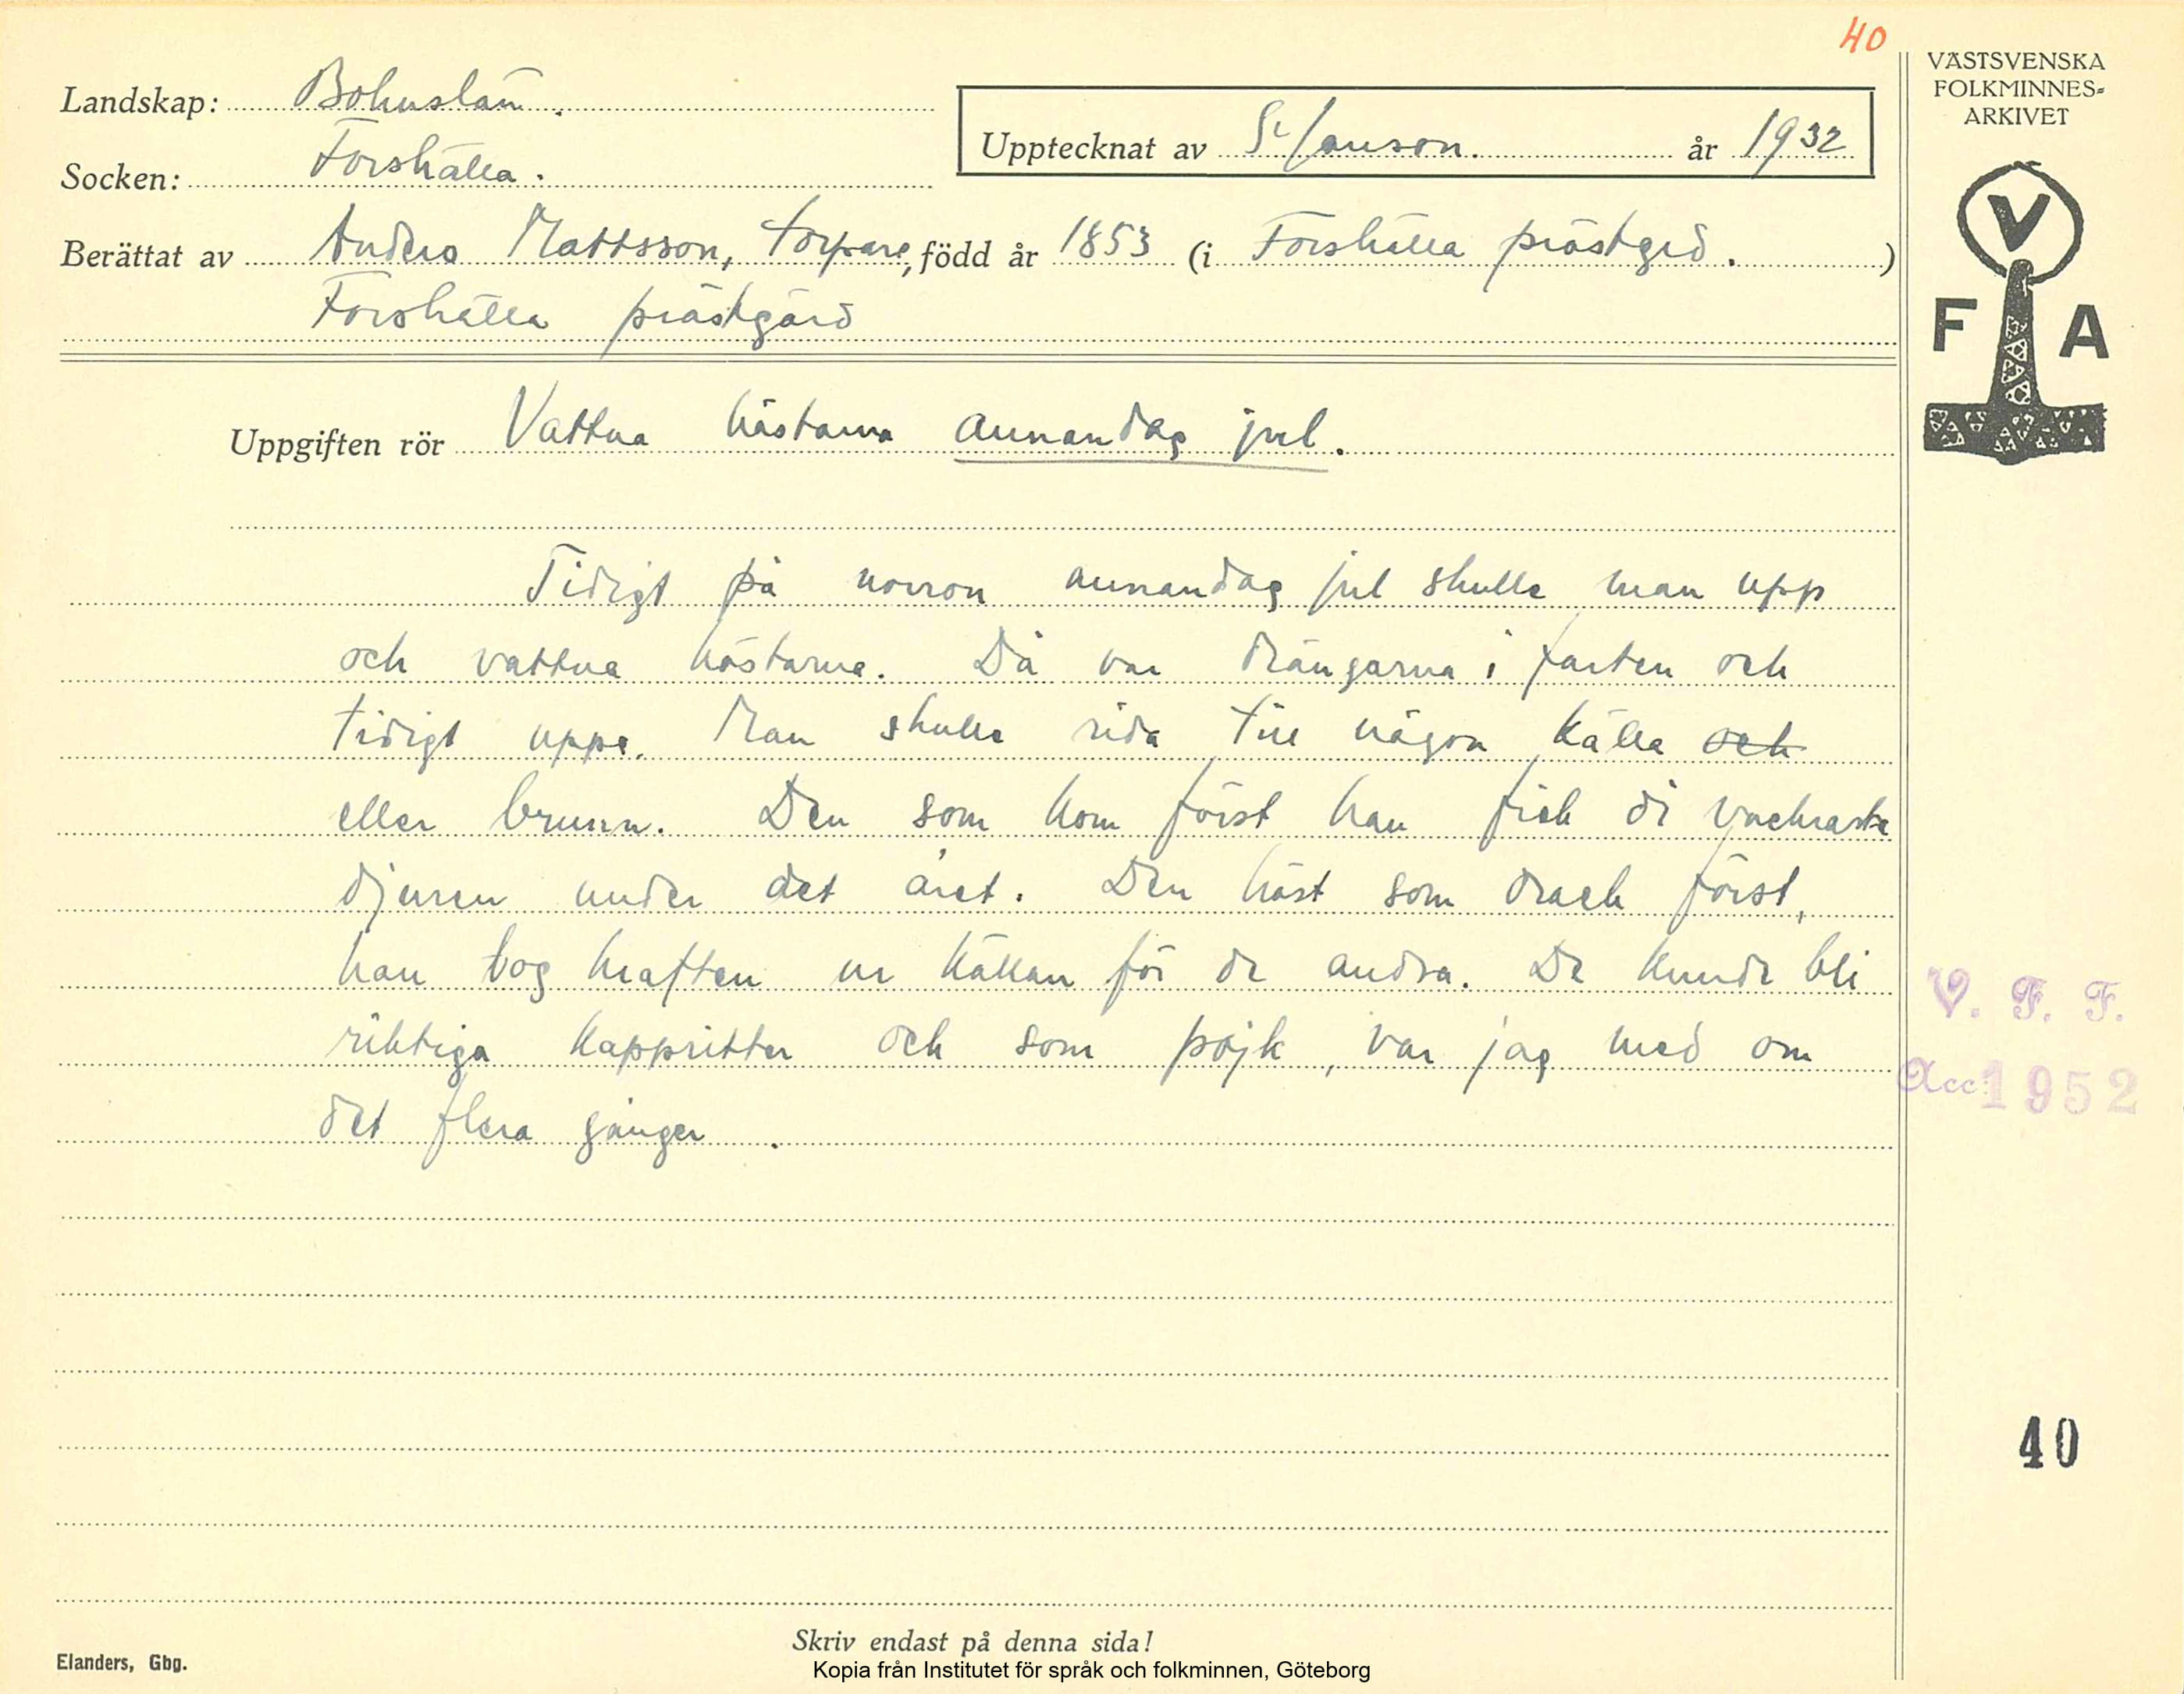 40
VÄSTSVENSKA
FOLKMINNES-
ARKIVET
Landskap: Bohuslän.
Upptecknat av S. Janson. år 1932
Socken: Forshälla.
Berättat av Anders Mattsson, torpare, född år 1853 (i Forshälla prästgrd.)
Forshälla prästgård
V
F A
Uppgiften rör Vattna hästarna annandag jul.
Tidigt på morron annandag jul skulle man upp
och vattna hästarna. Då var drängarna i farten och
tidigt uppe. Man skulle rida till någon källa och
eller brunn. Den som kom först han fick di vackraste
djuren under det året. Den häst som drack först,
han tog kraften ur källan för de andra. De kunde bli
riktiga kappritter och som pojk, var jag med om
det flera gånger.
V. F. F.
Acc: 1952
40
Skriv endast på denna sida!
Elanders, Gbg.
Kopia från Institutet för språk och folkminnen, Göteborg